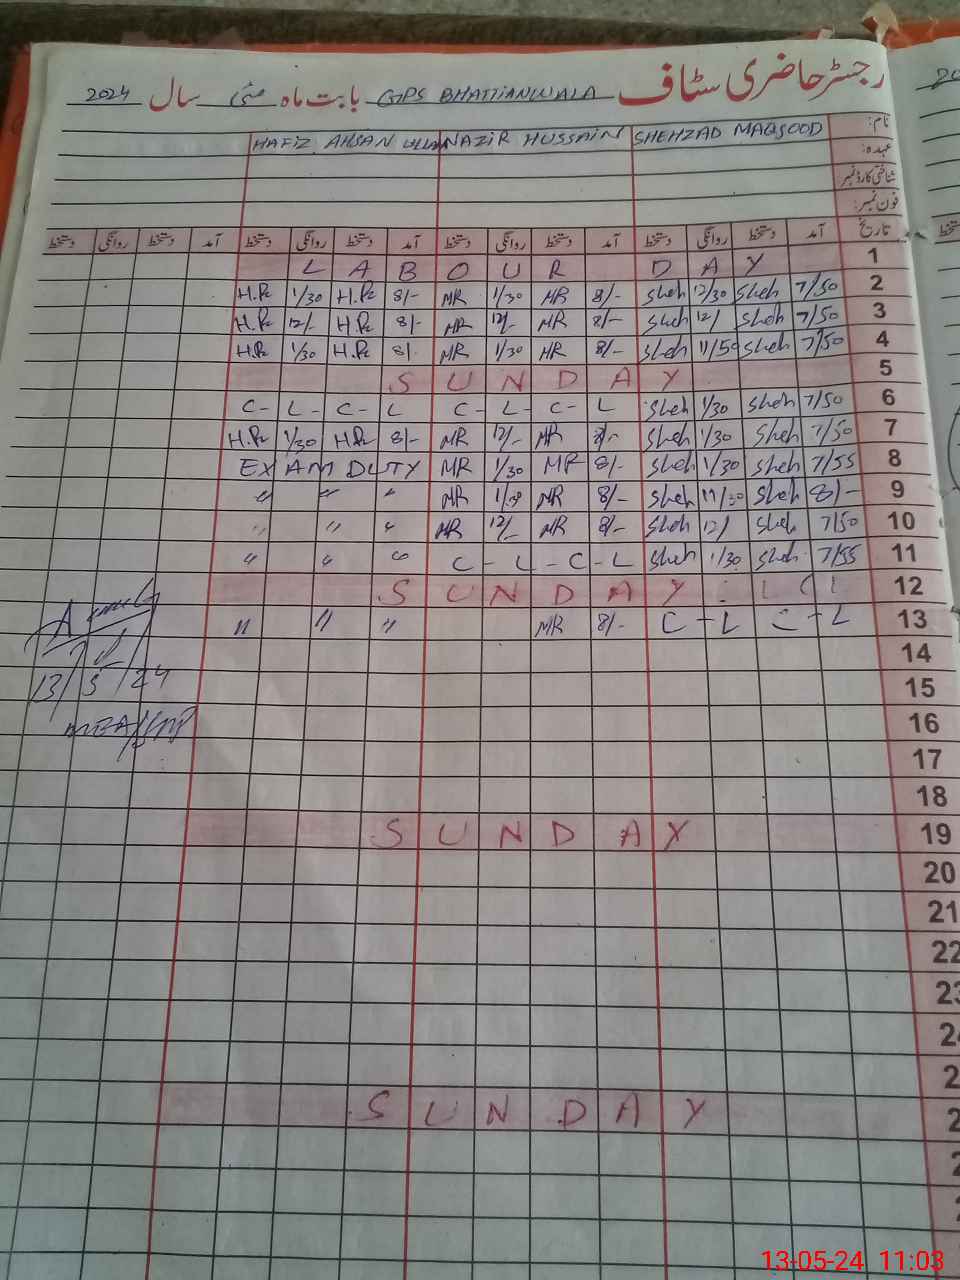 رجسٹر حاضری سٹاف GPS BHATTIANWALA بابت ماہ مئی سال 2024
نام: SHEHZAD MAQSOOD NAZIR HUSSAIN HAFIZ AHSAN ULLAH
عہدہ:
شناختی کارڈ نمبر
فون نمبر:
تاریخ آمد دستخط روانگی دستخط آمد دستخط روانگی دستخط آمد دستخط روانگی دستخط آمد دستخط روانگی دستخط
LABOUR DAY 1
H.R 1/30 H.R 8/- MR 1/30 MR 8/- Sheh 12/30 Sheh 7/50 2
H.R 12/- H.R 8/- MR 12/- MR 8/- Sheh 12/ Sheh 7/50 3
H.R 1/30 H.R 8/. MR 1/30 MR 8/- Sheh 11/50 Sheh 7/50 4
SUNDAY 5
C - L - C - L C - L - C - L Sheh 1/30 Sheh 7/50 6
H.R 1/30 H.R 8/- MR 12/- MR 8/- Sheh 1/30 Sheh 7/50 7
EXAM DUTY MR 1/30 MR 8/- Sheh 1/30 Sheh 7/55 8
" " " MR 1/30 MR 8/- Sheh 11/30 Sheh 8/- 9
" " " MR 12/- MR 8/- Sheh 12/ Sheh 7/50 10
" " " C - L - C - L Sheh 1/30 Sheh 7/55 11
SUNDAY 12
" " " MR 8/- C - L C - L 13
14
13/5/24
15
MEA
16
17
18
SUNDAY 19
20
21
22
23
SUNDAY
13-05-24 11:03